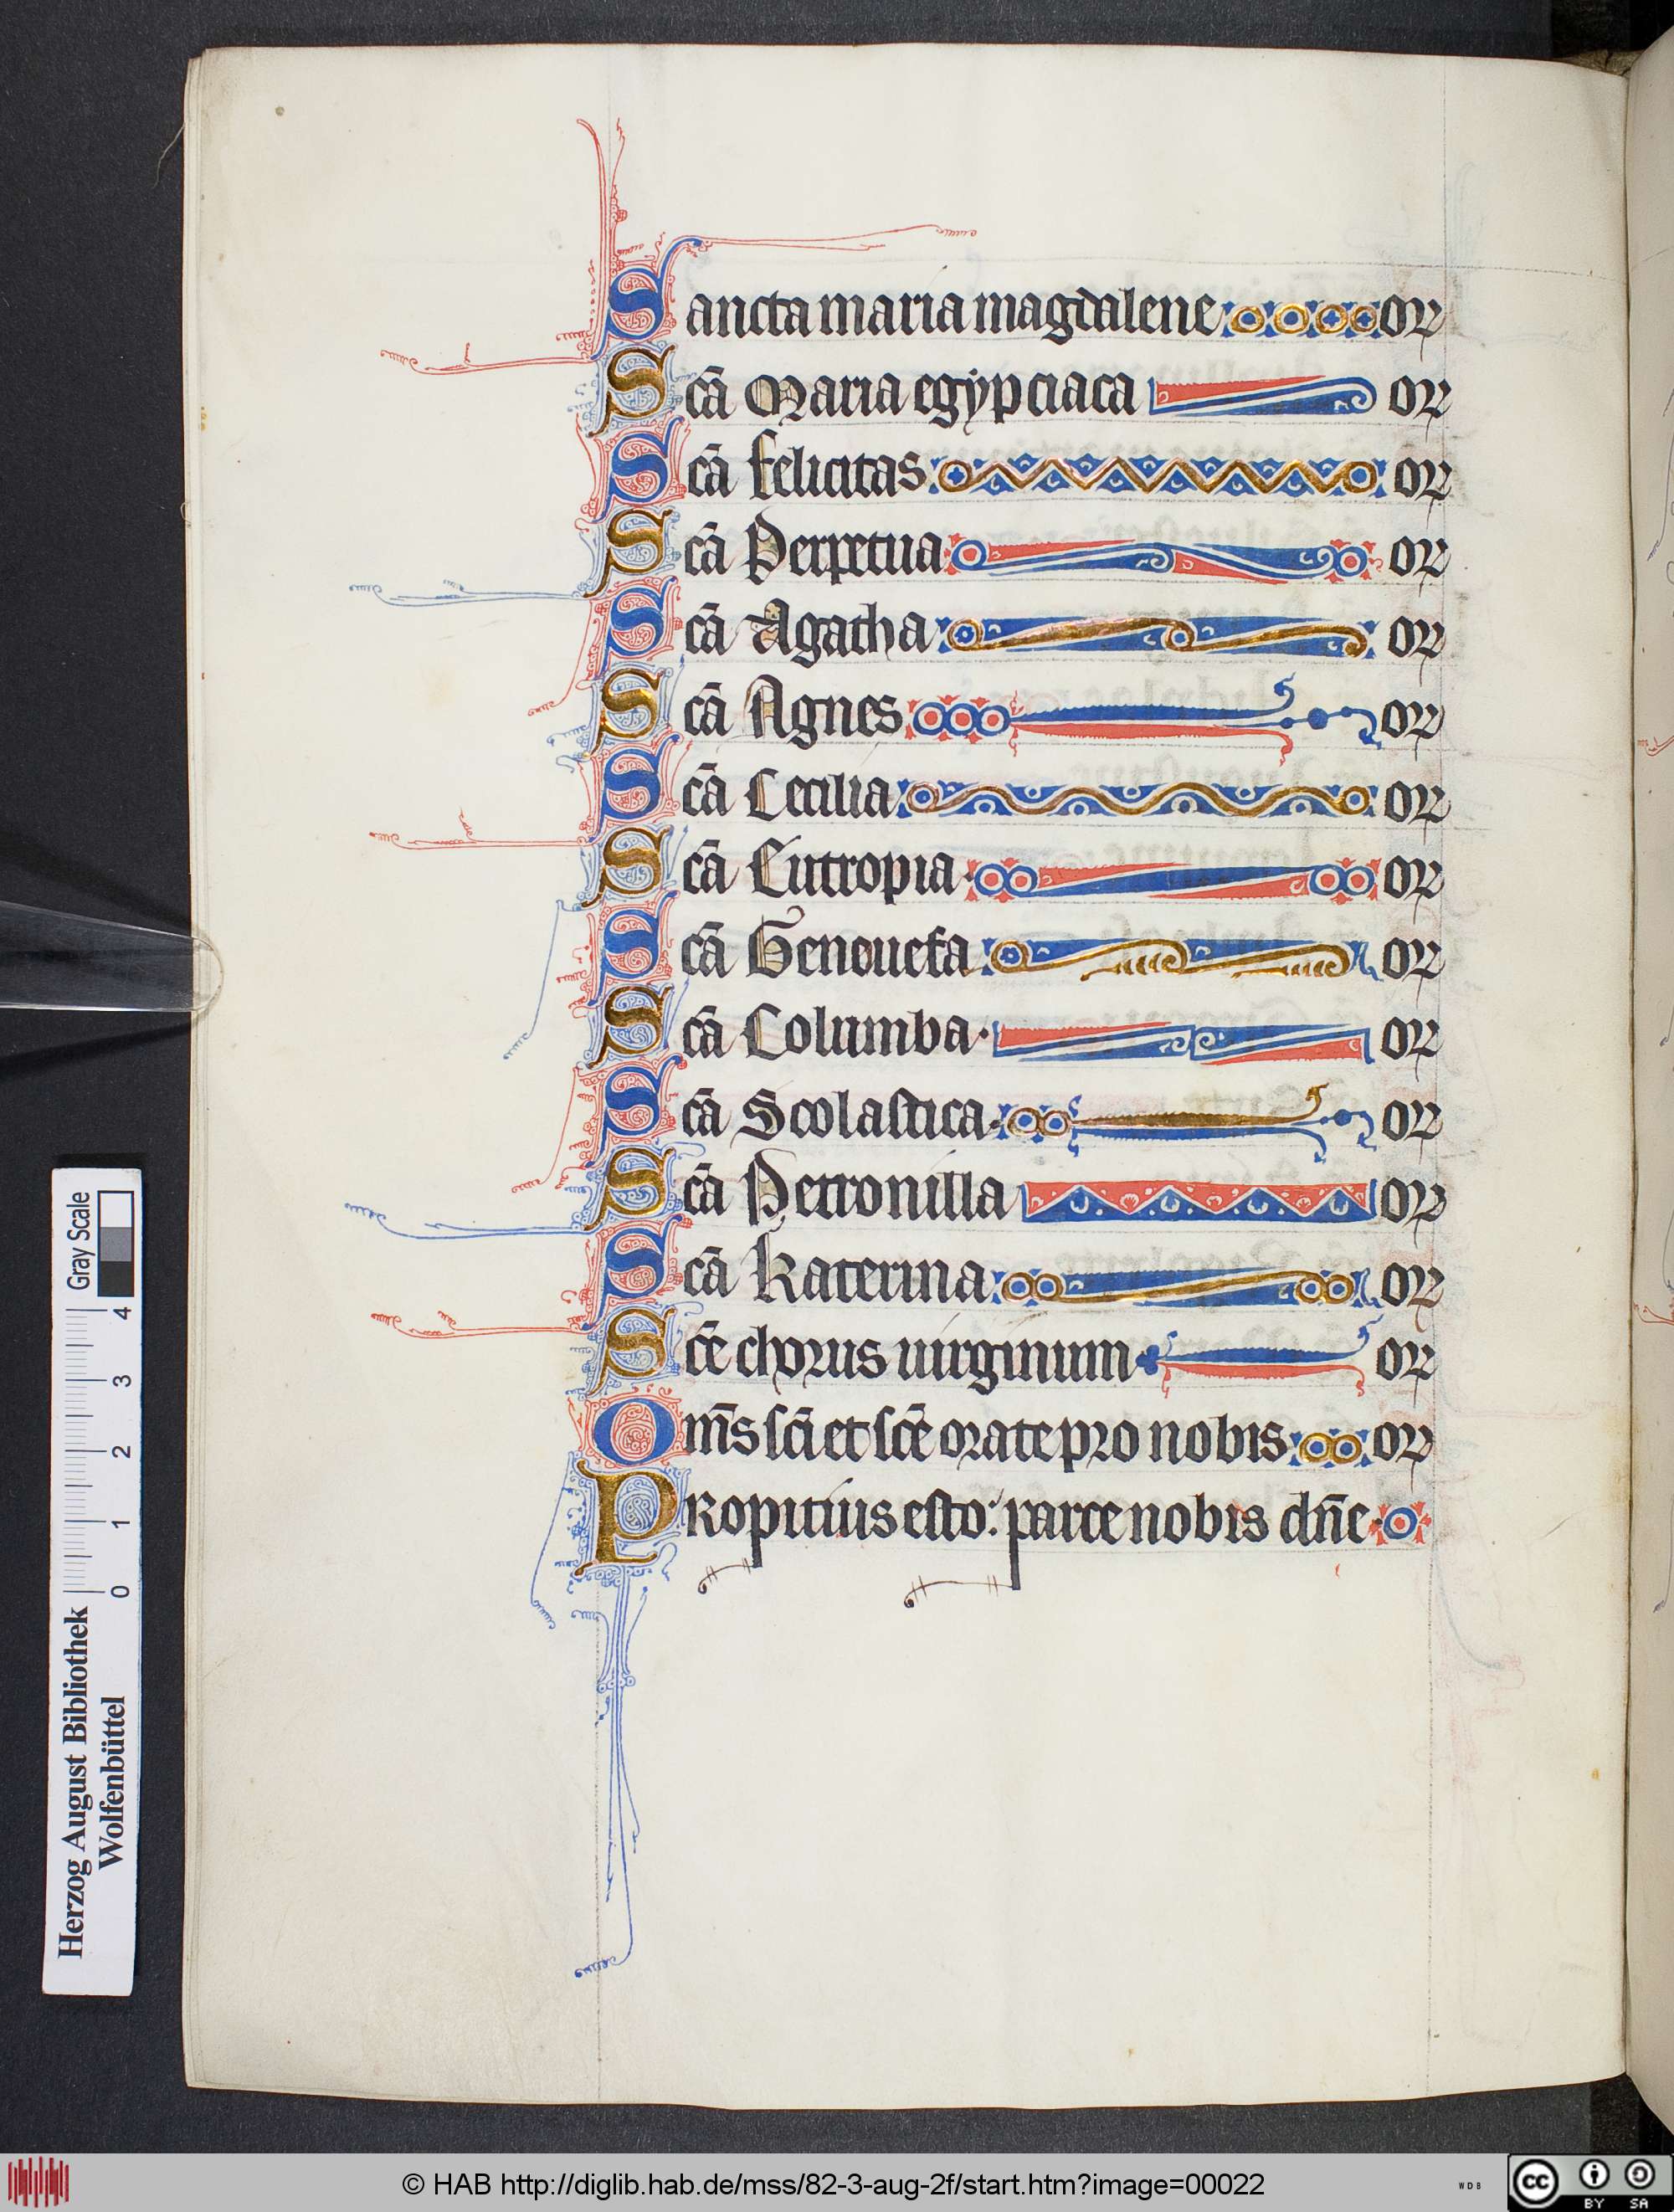 Sancta maria magdalene or
Scā Maria egypciaca or
Scā felicitas or
Scā Perpetua or
Scā Agatha or
Scā Agnes or
Scā Cecilia or
Scā Eutropia or
Scā Genouefa or
Scā Columba or
Scā Scolastica or
Scā Petronilla or
Scā Katerina or
Scē chorus uirginum or
Om̄s sc̄i et sc̄e orate pro nobis or
Propitius esto: parce nobis dn̄e
Gray Scale
0 1 2 3 4
Herzog August Bibliothek
Wolfenbüttel
© HAB http://diglib.hab.de/mss/82-3-aug-2f/start.htm?image=00022
WDB
cc
BY SA